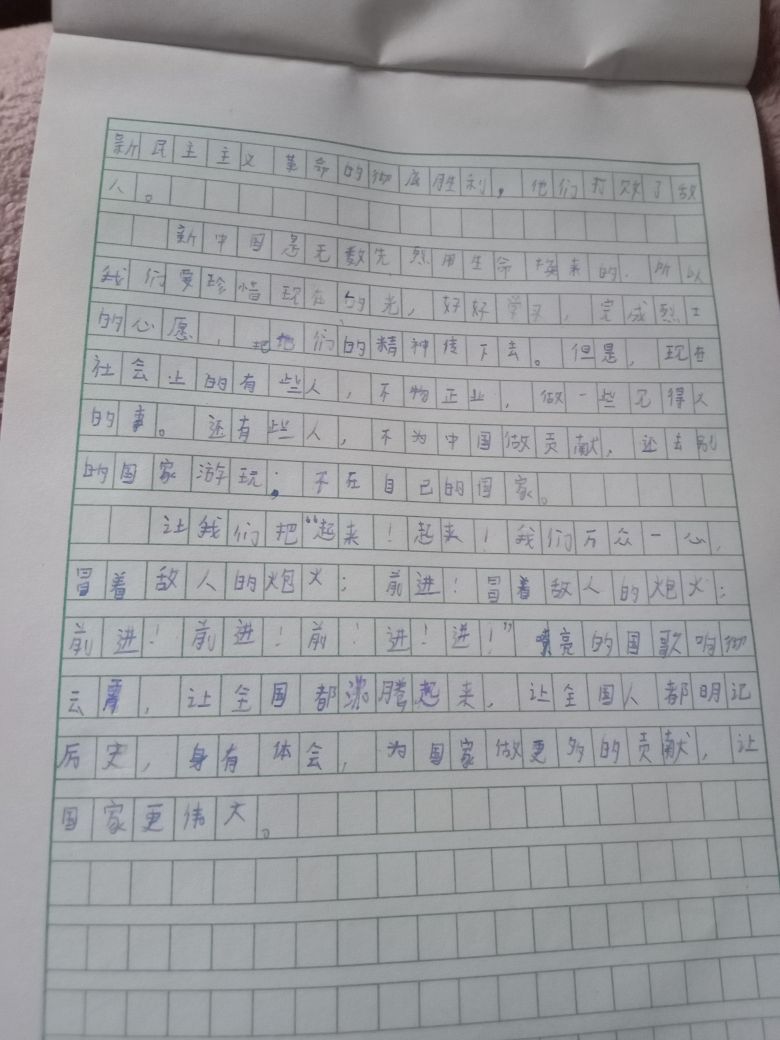 新民主主义革命的彻底胜利，他们打败了敌
人。
新中国是无数先烈用生命换来的．所以
我们要珍惜现在的光，好好学习，完成烈士
的心愿，把他们的精神传下去。但是，现在
社会上的有些人，不物正业，做一些见得人
的事。还有些人，不为中国做贡献，还去别
的国家游玩；不在自己的国家。
让我们把“起来！起来！我们万众一心，
冒着敌人的炮火；前进！冒着敌人的炮火；
前进！前进！前！进！进！”嘹亮的国歌响彻
云霄，让全国都沸腾起来，让全国人都明记
历史，身有体会，为国家做更多的贡献，让
国家更伟大。